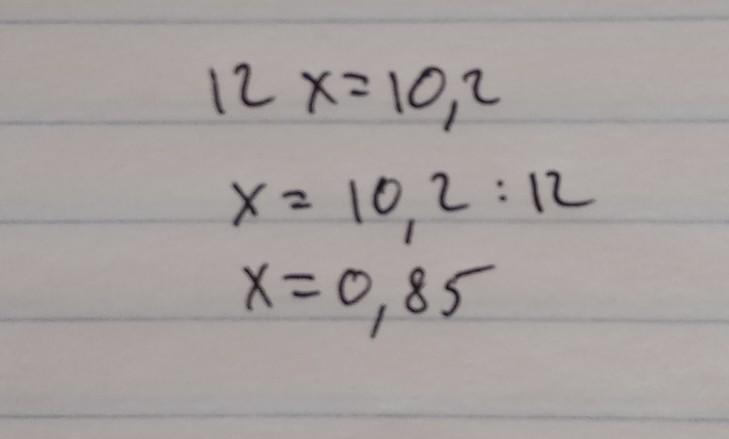 12 x = 10,2
x = 10,2 : 12
x = 0,85